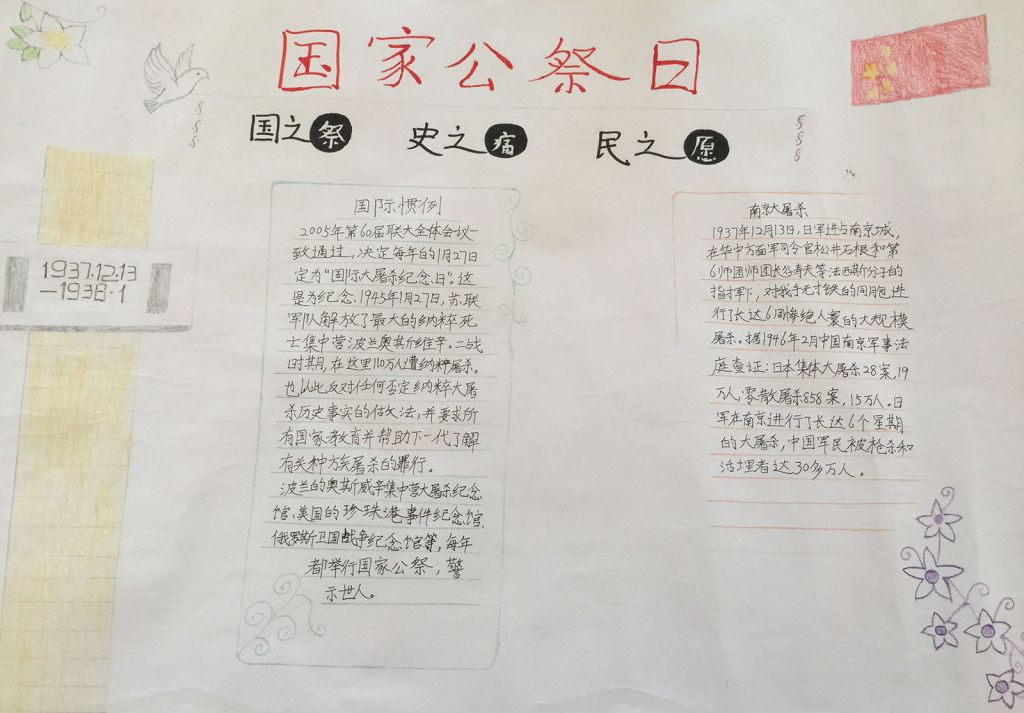 国家公祭日
国之祭 史之痛 民之愿
1937.12.13
-1938.1
国际惯例
2005年第60届联大全体会议一
致通过,决定每年的1月27日
定为"国际大屠杀纪念日"。这
是为纪念1945年1月27日,苏联
军队解放了最大的纳粹死
亡集中营波兰奥斯维辛。二战
时期,在这里110万人遭纳粹屠杀。
也以此反对任何否定纳粹大屠
杀历史事实的做法,并要求所
有国家教育并帮助下一代了解
有关种族屠杀的罪行。
波兰的奥斯威辛集中营大屠杀纪念
馆、美国的珍珠港事件纪念馆、
俄罗斯卫国战争纪念馆等,每年
都举行国家公祭,警
示世人。
南京大屠杀
1937年12月13日,日军进占南京城,
在华中方面军司令官松井石根和第
6师团师团长谷寿夫等法西斯分子的
指挥下,对我手无寸铁的同胞进
行了长达6周惨绝人寰的大规模
屠杀。据1946年2月中国南京军事法
庭查证:日本集体大屠杀28案,19
万人,零散屠杀858案,15万人。日
军在南京进行了长达6个星期
的大屠杀,中国军民被枪杀和
活埋者达30多万人。